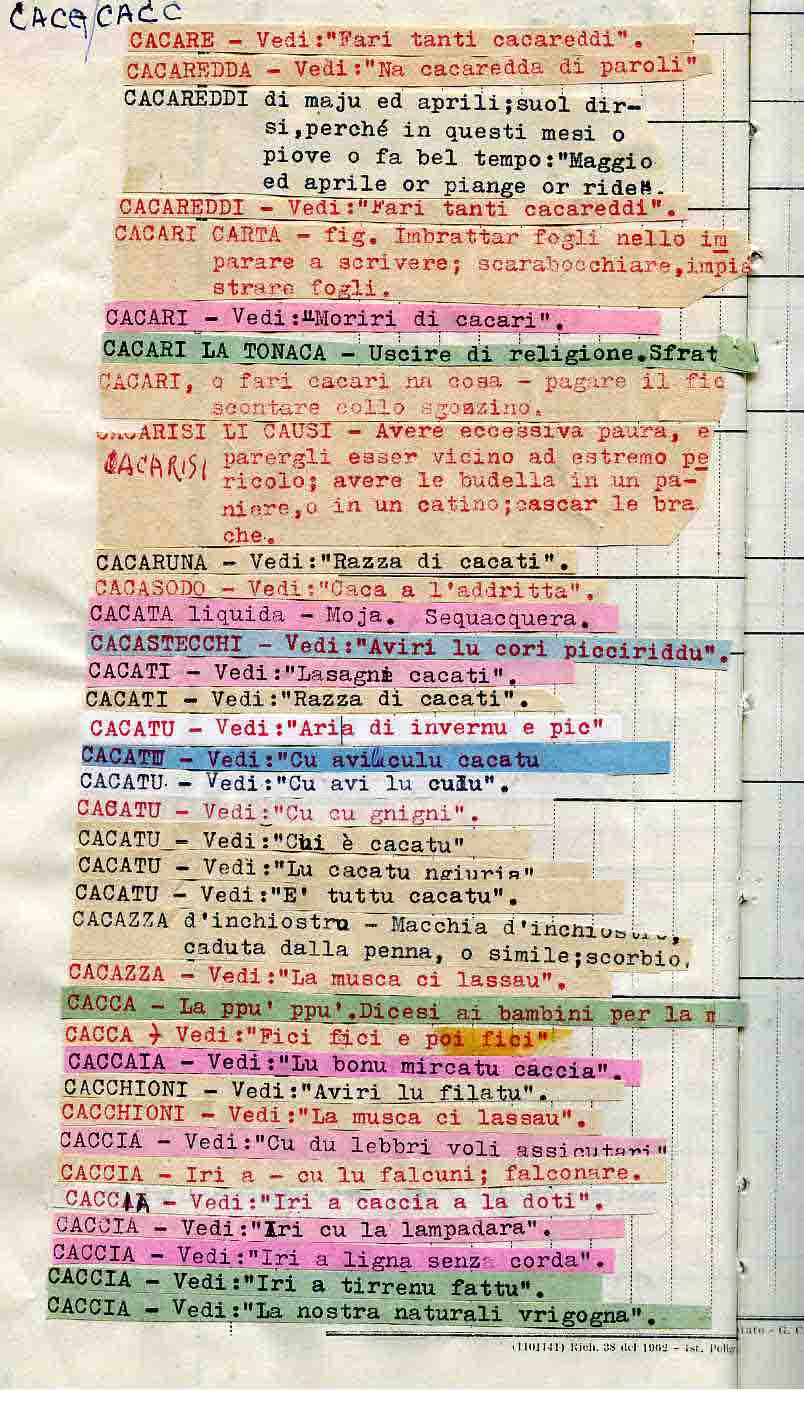 CACA/CACC
CACARE - Vedi:"Fari tanti cacareddi".
CACAREDDA - Vedi:"Na cacaredda di paroli"
CACAREDDI di maju ed aprili;suol dir-
si,perché in questi mesi o
piove o fa bel tempo:"Maggio
ed aprile or piange or ride".
CACAREDDI - Vedi:"Fari tanti cacareddi".
CACARI CARTA - fig. Imbrattar fogli nello im
parare a scrivere; scarabocchiare,impia
strare fogli.
CACARI - Vedi:"Moriri di cacari".
CACARI LA TONACA - Uscire di religione.Sfrat
CACARI, o fari cacari na cosa - pagare il fio
scontare collo sgozzino.
CACARISI LI CAUSI - Avere eccessiva paura, e
CACARISI
parergli esser vicino ad estremo pe
ricolo; avere le budella in un pa-
niere,o in un catino;cascar le bra
che.
CACARUNA - Vedi:"Razza di cacati".
CACASODO - Vedi:"Caca a l'addritta".
CACATA liquida - Moja. Sequacquera.
CACASTECCHI - Vedi:"Aviri lu cori picciriddu".
CACATI - Vedi:"Lasagni cacati".
CACATI - Vedi:"Razza di cacati".
CACATU - Vedi:"Aria di invernu e pic"
CACATU - Vedi:"Cu avi lu culu cacatu
CACATU - Vedi:"Cu avi lu culu".
CACATU - Vedi:"Cu cu gnigni".
CACATU - Vedi:"Chi è cacatu"
CACATU - Vedi:"Lu cacatu ngiuria"
CACATU - Vedi:"E' tuttu cacatu".
CACAZZA d'inchiostru - Macchia d'inchiostro,
caduta dalla penna, o simile;scorbio.
CACAZZA - Vedi:"La musca ci lassau".
CACCA - La ppu' ppu'.Dicesi ai bambini per la m
CACCA - Vedi:"Fici fici e poi fici"
CACCAIA - Vedi:"Lu bonu mircatu caccia".
CACCHIONI - Vedi:"Aviri lu filatu".
CACCHIONI - Vedi:"La musca ci lassau".
CACCIA - Vedi:"Cu du lebbri voli assicutari"
CACCIA - Iri a - cu lu falcuni; falconare.
CACCIA - Vedi:"Iri a caccia a la doti".
CACCIA - Vedi:"Iri cu la lampadara".
CACCIA - Vedi:"Iri a ligna senza corda".
CACCIA - Vedi:"Iri a tirrenu fattu".
CACCIA - Vedi:"La nostra naturali vrigogna".
(1101141) Rich. 38 del 1962 - Ist. Polig
- G. C.